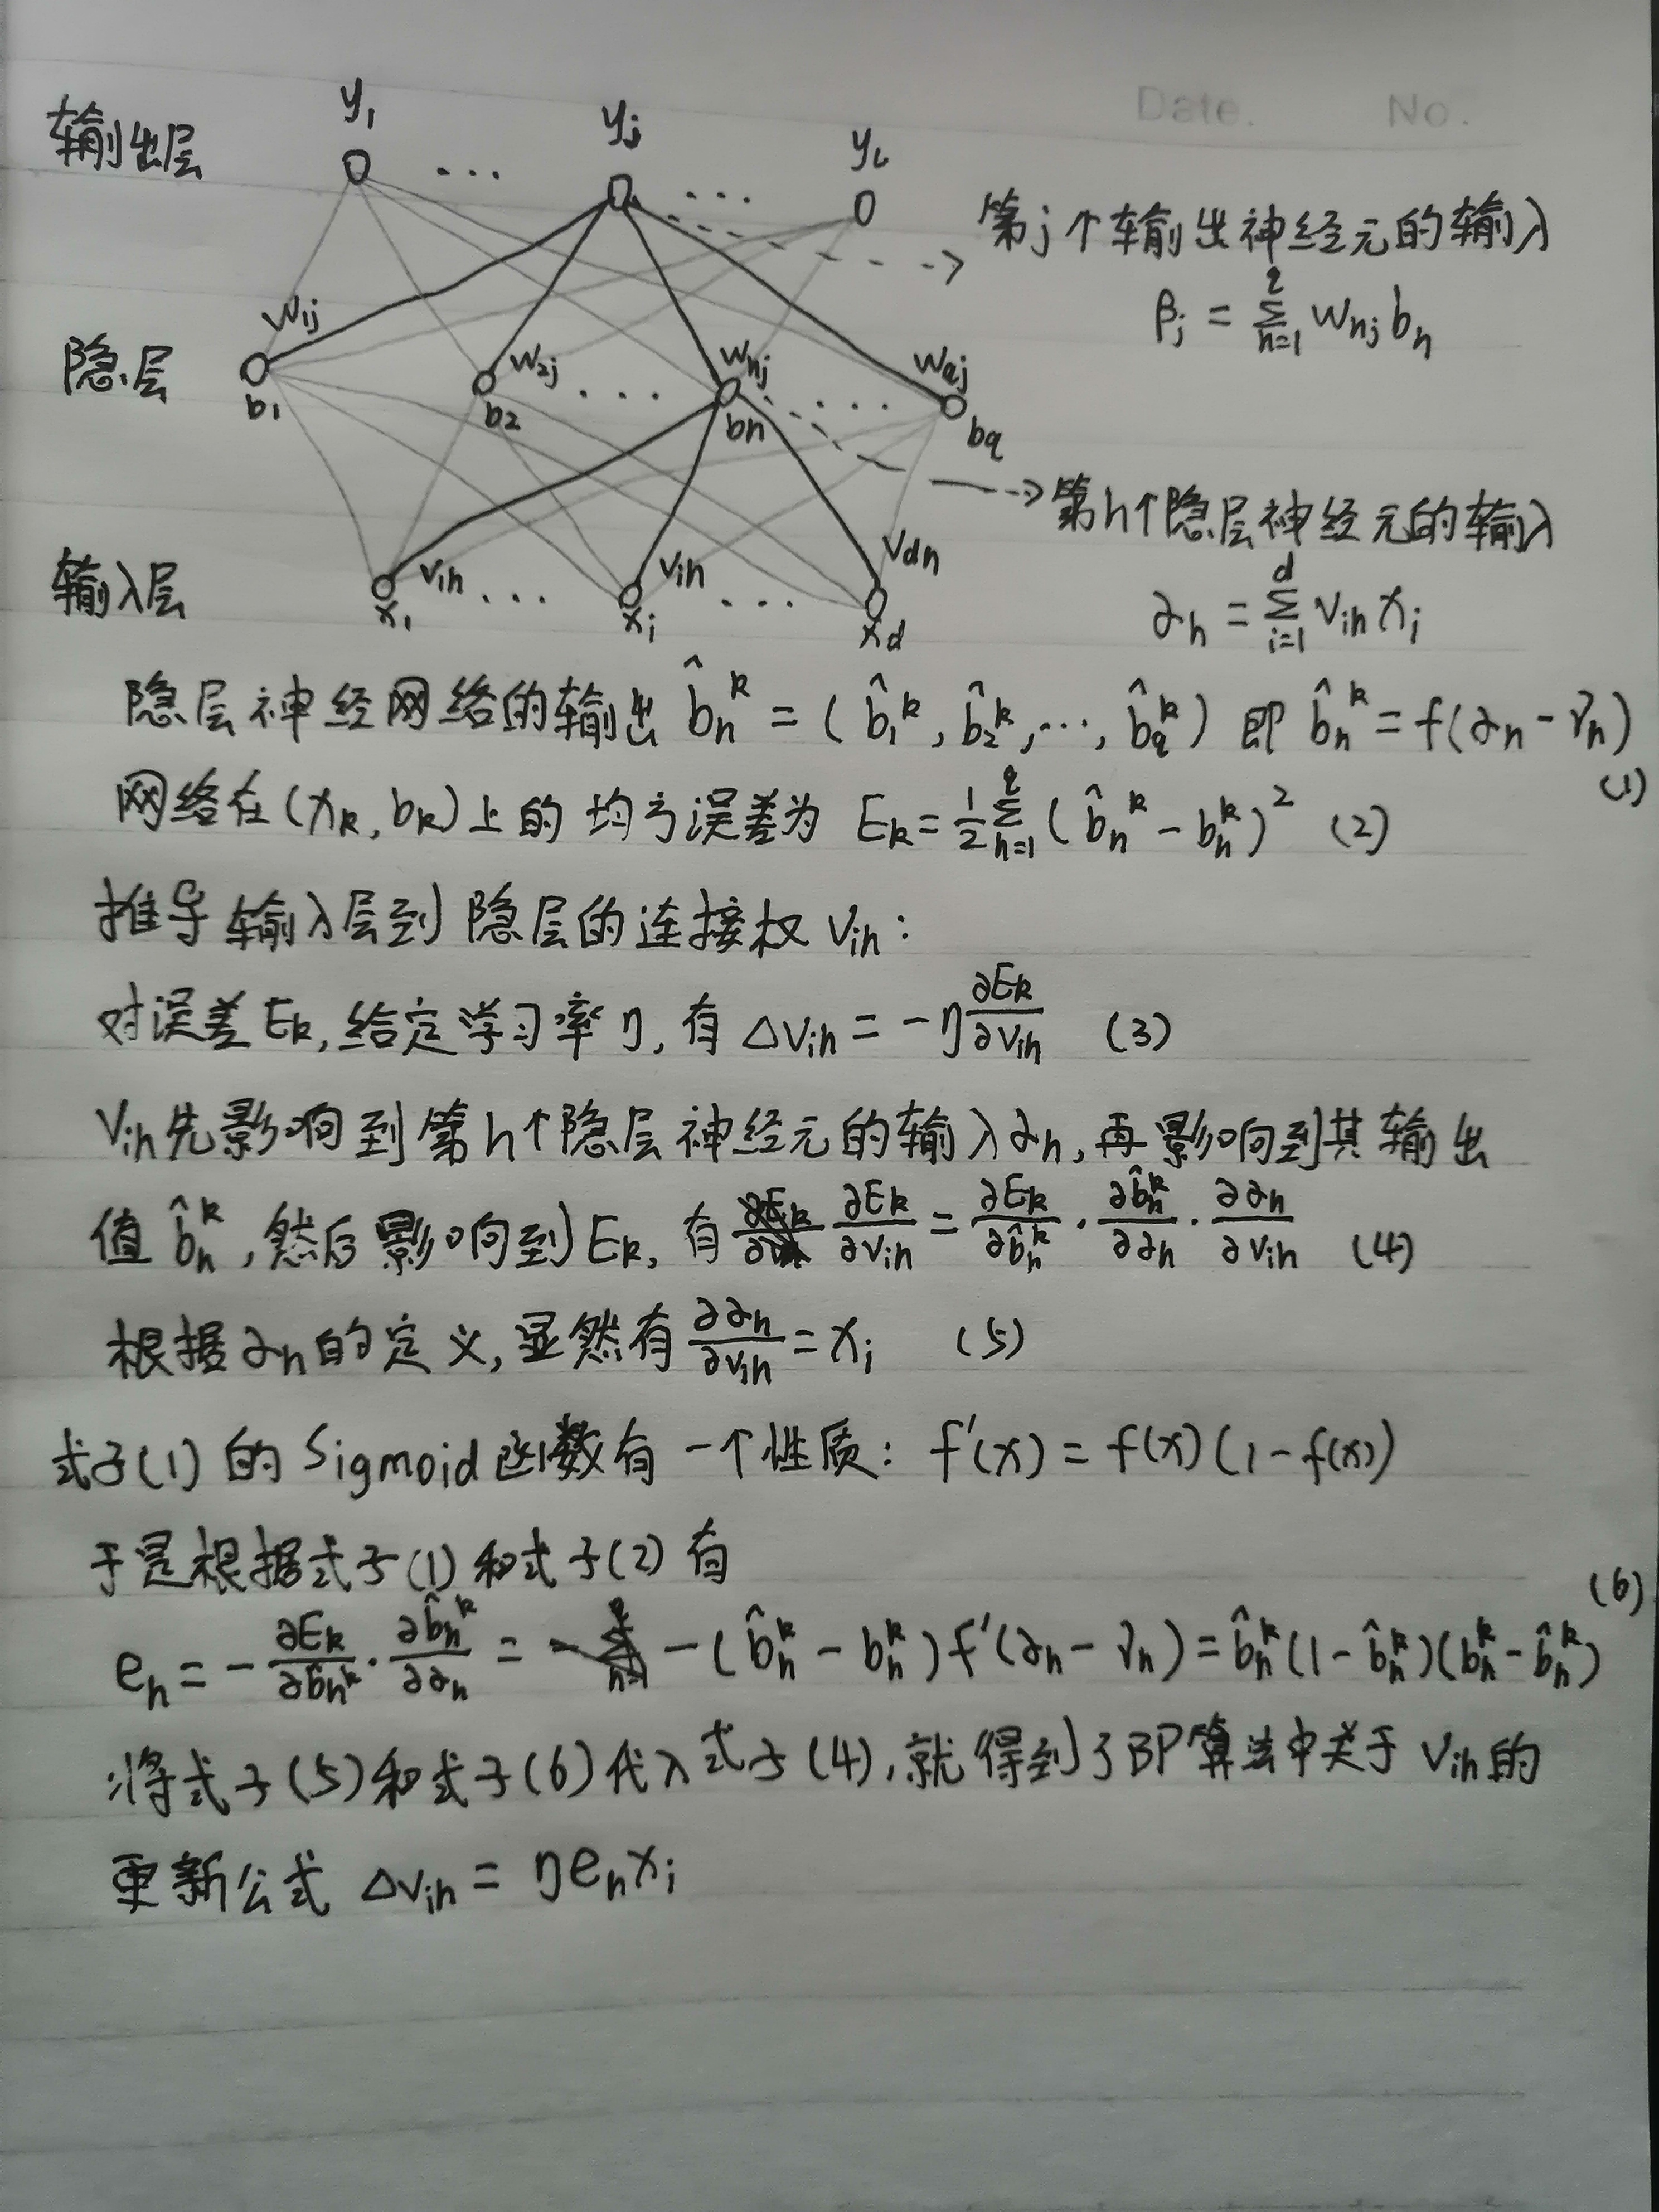 Date. No.
输出层 y₁ ... yⱼ ... yₗ
第j个输出神经元的输入
βⱼ = Σ_{h=1}^{q} w_{hj} b_h
w₁ⱼ w₂ⱼ w_{hj} w_{qj}
隐层 b₁ b₂ ... b_h ... b_q
第h个隐层神经元的输入
α_h = Σ_{i=1}^{d} v_{ih} x_i
v_{1h} v_{ih} v_{dh}
输入层 x₁ ... x_i ... x_d
隐层神经网络的输出 b̂_h^k = (b̂₁^k, b̂₂^k, ..., b̂_q^k) 即 b̂_h^k = f(α_h - γ_h) (1)
网络在(x_k, b_k)上的均方误差为 E_k = 1/2 Σ_{h=1}^{q} (b̂_h^k - b_h^k)² (2)
推导输入层到隐层的连接权 v_{ih}:
对误差E_k, 给定学习率η, 有 Δv_{ih} = -η ∂E_k/∂v_{ih} (3)
v_{ih}先影响到第h个隐层神经元的输入α_h, 再影响到其输出
值 b̂_h^k, 然后影响到E_k, 有 ∂E_k/∂v_{ih} = ∂E_k/∂b̂_h^k · ∂b̂_h^k/∂α_h · ∂α_h/∂v_{ih} (4)
根据α_h的定义, 显然有 ∂α_h/∂v_{ih} = x_i (5)
式子(1)的Sigmoid函数有一个性质: f'(x) = f(x)(1-f(x))
于是根据式子(1)和式子(2)有
e_h = -∂E_k/∂b̂_h^k · ∂b̂_h^k/∂α_h = -(b̂_h^k - b_h^k) f'(α_h - γ_h) = b̂_h^k(1-b̂_h^k)(b_h^k - b̂_h^k) (6)
将式子(5)和式子(6)代入式子(4), 就得到了BP算法中关于v_{ih}的
更新公式 Δv_{ih} = ηe_h x_i